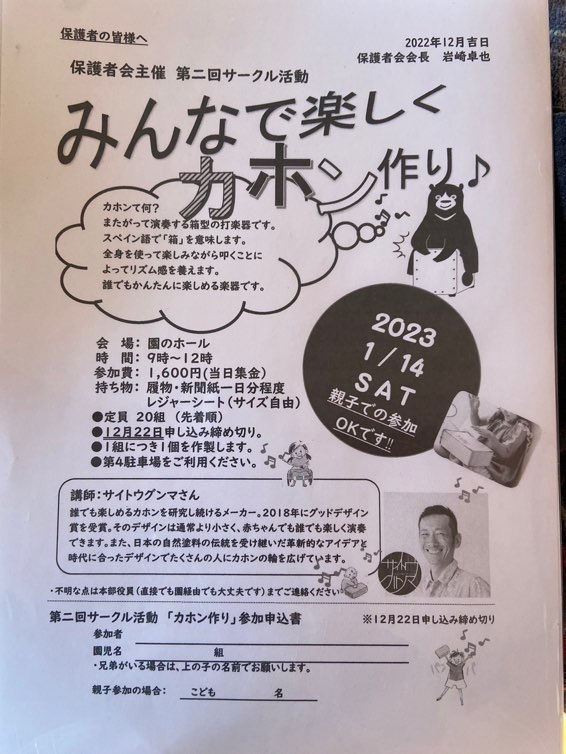 保護者の皆様へ
2022年12月吉日
保護者会会長 岩崎卓也
保護者会主催 第二回サークル活動
みんなで楽しく
カホン作り♪
カホンて何?
またがって演奏する箱型の打楽器です。
スペイン語で「箱」を意味します。
全身を使って楽しみながら叩くことに
よってリズム感を養えます。
誰でもかんたんに楽しめる楽器です。
2023
1/14
SAT
親子での参加
OKです!!
会 場: 園のホール
時 間: 9時~12時
参加費: 1,600円(当日集金)
持ち物: 履物・新聞紙一日分程度
レジャーシート(サイズ自由)
●定員 20組 (先着順)
●12月22日申し込み締め切り。
●1組につき1個を作製します。
●第4駐車場をご利用ください。
講師:サイトウグンマさん
誰でも楽しめるカホンを研究し続けるメーカー。2018年にグッドデザイン
賞を受賞。そのデザインは通常より小さく、赤ちゃんでも誰でも楽しく演奏
できます。また、日本の自然塗料の伝統を受け継いだ革新的なアイデアと
時代に合ったデザインでたくさんの人にカホンの輪を広げています。
・不明な点は本部役員(直接でも園経由でも大丈夫です)までご連絡ください
第二回サークル活動 「カホン作り」参加申込書 ※12月22日申し込み締め切り
参加者
園児名 組
・兄弟がいる場合は、上の子の名前でお願いします。
親子参加の場合: こども 名